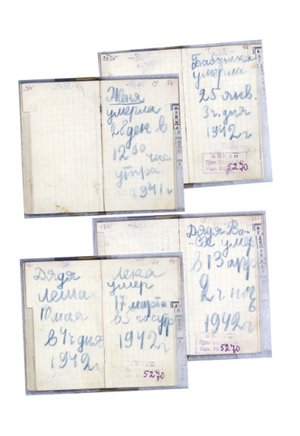 Женя
умерла
28 дек в
12 30 час
утра
1941 г
Бабушка
умерла
25 янв.
3 ч. дня
1942 г
5270
Дядя
Леша
10 мая
в 4 ч дня
1942 г
Лека
умер
17 марта
в 5 час утр
1942 г
5270
Дядя Ва-
ся умер
в 13 апр
2 ч ноч
1942 г
5270